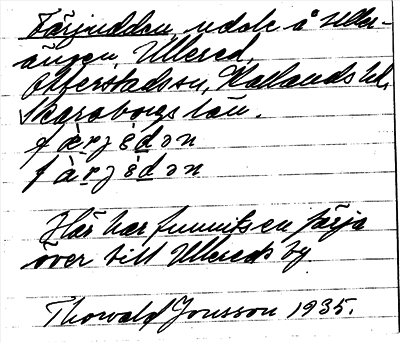 Färjudden, udde å Uller-
ängen, Ullered,
Otterstads sn, Kållands hd,
Skaraborgs län.
fæ̀rjèdən
fàrjèdən
Här har funnits en färja
över till Ullereds by.
Thorvald Jonsson 1935.